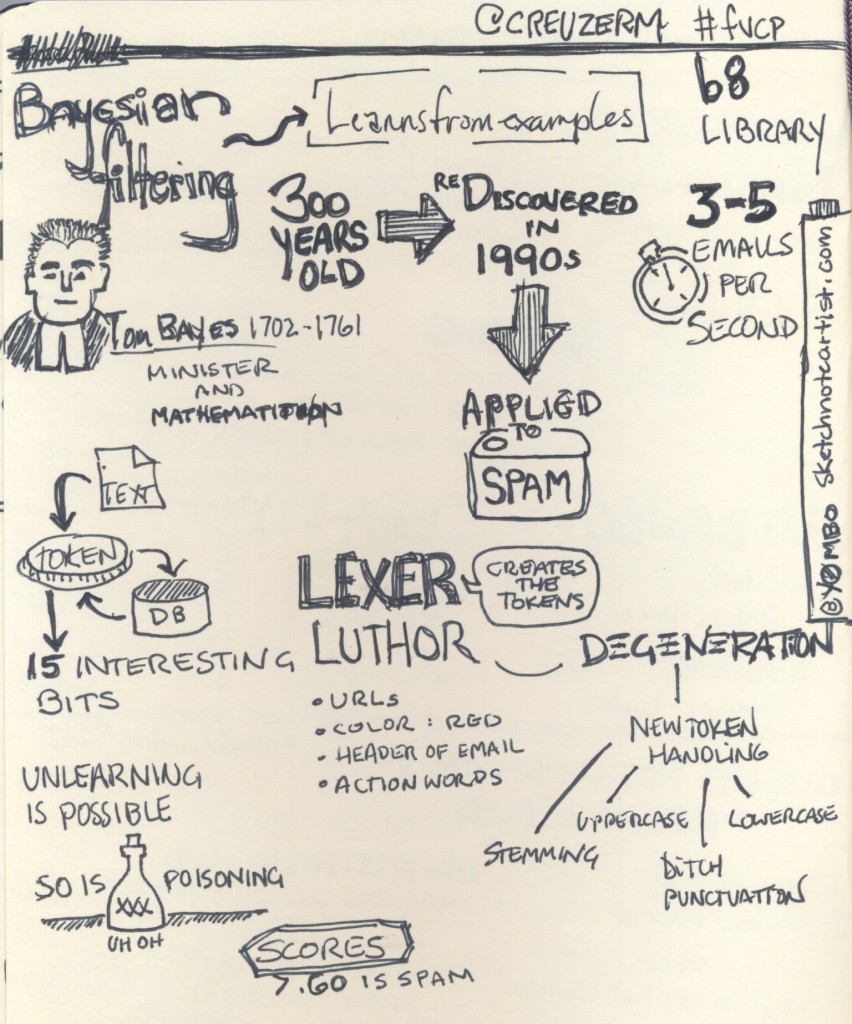 @CREUZERM #fvcp
Bayesian
filtering
Learnsfromexamples
b8
LIBRARY
300
YEARS
OLD
RE DISCOVERED
IN
1990s
3-5
EMAILS
PER
SECOND
Tom BAYES 1702-1761
MINISTER
AND
APPLIED
TO
SPAM
TEXT
TOKEN
DB
15 INTERESTING
BITS
LEXER
LUTHOR
CREATES
THE
TOKENS
• URLS
• COLOR : RED
• HEADER OF EMAIL
• ACTION WORDS
DEGENERATION
NEW TOKEN
HANDLING
STEMMING
UPPERCASE
DITCH
PUNCTUATION
LOWERCASE
UNLEARNING
IS POSSIBLE
SO IS POISONING
XXX
UH OH
SCORES
7.60 IS SPAM
@YØMBO sketchnoteartist.com